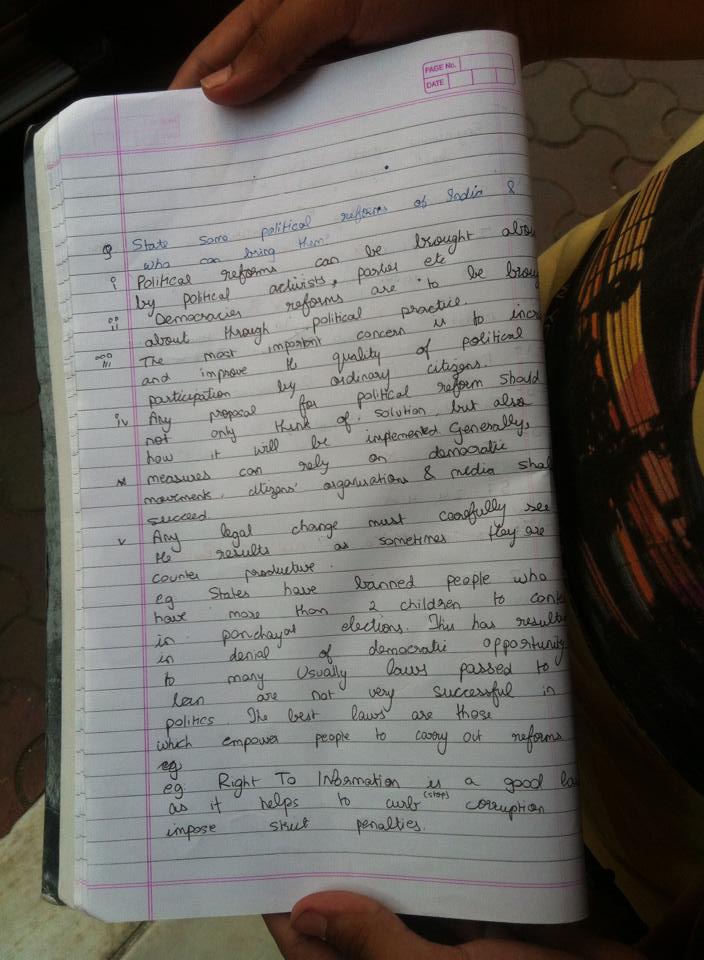 PAGE No.
DATE
Q State some political reforms of India &
who can bring them
i Political reforms can be brought abou
by political activists, parties etc
ii Democracies reforms are to be broug
about through political practice.
iii The most important concern is to incr
and improve the quality of political
participation by ordinary citizens.
iv Any proposal for political reform should
not only think of solution, but also
how it will be implemented. Generally,
measures can rely on democratic
movement, citizens' organisations & media shal
succeed
v Any legal change must carefully see
the results as sometimes they are
counter productive.
eg States have banned people who
have more than 2 children to cont
in panchayat elections. This has result
in denial of democratic opportunity
to many Usually laws passed to
are not very successful in
politics. The best laws are those
which empower people to carry out reforms
eg
eg: Right To Information is a good la
as it helps to curb (stop) corruption
impose strict penalties.